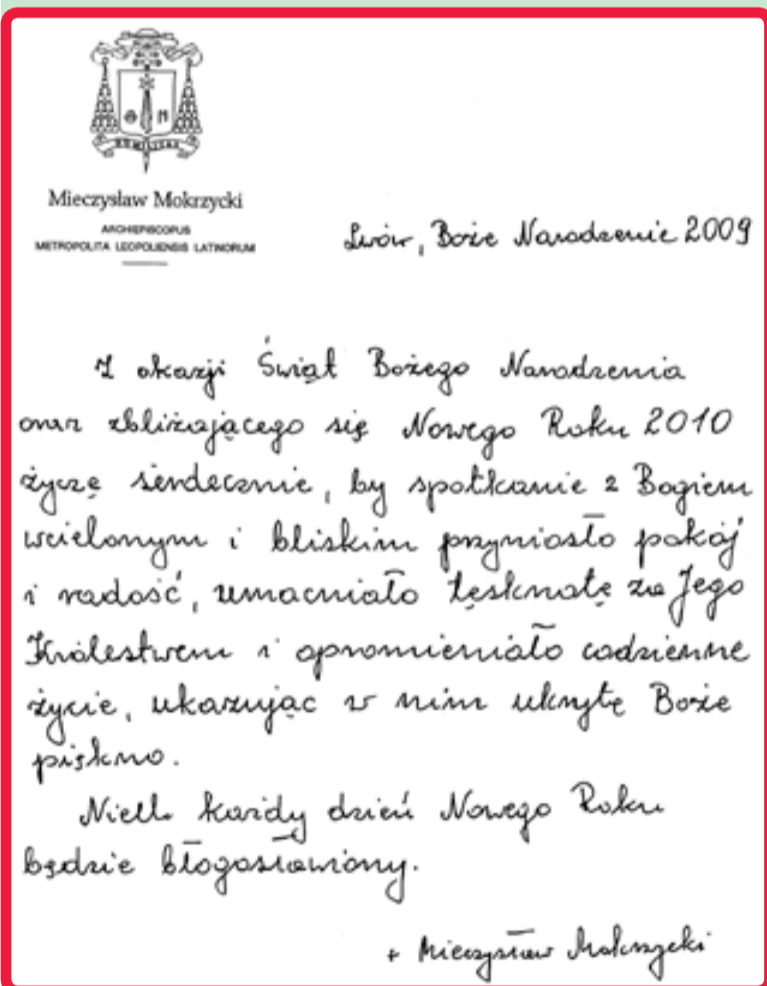 HUMILITAS
Mieczysław Mokrzycki
ARCHIEPISCOPUS
METROPOLITA LEOPOLIENSIS LATINORUM
Lwów, Boże Narodzenie 2009
Z okazji Świąt Bożego Narodzenia
oraz zbliżającego się Nowego Roku 2010
życzę serdecznie, by spotkanie z Bogiem
wcielonym i bliskim przyniosło pokój
i radość, umacniało tęsknotę za Jego
Królestwem i opromieniało codzienne
życie, ukazując w nim ukryte Boże
piękno.
Niech każdy dzień Nowego Roku
będzie błogosławiony.
+ Mieczysław Mokrzycki